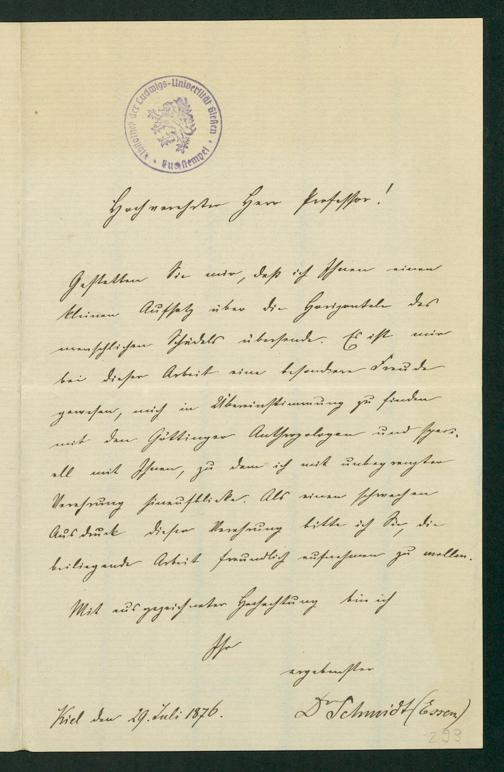 Bibliothek der Ludwigs-Universität Gießen
Buchstempel
Hochverehrter Herr Professor!
Gestatten Sie mir, daß ich Ihnen einen
kleinen Aufsatz über die Horizontale des
menschlichen Schädels übersende. Es ist mir
bei dieser Arbeit eine besondere Freude
gewesen, mich in Übereinstimmung zu finden
mit den Göttinger Anthropologen und spezi-
ell mit Ihnen, zu dem ich mit unbegrenzter
Verehrung hinaufblicke. Als einen schwachen
Ausdruck dieser Verehrung bitte ich Sie, die
beiliegende Arbeit freundlich aufnehmen zu wollen.
Mit ausgezeichneter Hochachtung bin ich
Ihr
ergebenster
Kiel den 29. Juli 1876.
Dr Schmidt (Essen)
293